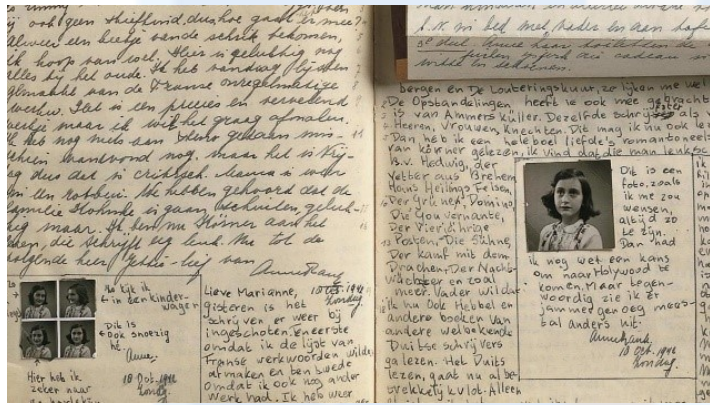 ij ook geen
alweer een beetje van de schrik bekomen,
ik hoop van wel. Hier is gelukkig nog
alles bij het oude. Ik heb vandaag lijsten
gemaakt van de Franse onregelmatige
werkw. Het is een precies en vervelend
werkje maar ik wil het graag afmaken.
Ik heb nog niets aan steno gedaan mis-
schien vanavond nog, maar het is Vrij-
dag dus dat is critisch. Mama is weer
in een rotbui. We hebben gehoord dat de
familie is gaan schuilen, geluk-
kig maar. Ik ben nu Körner aan het
lezen, die schrijft erg leuk. Nu tot de
volgende keer, van
Anne Frank
Na kijk ik
in de kinder-
wagen
Dit is
ook snoezig
hè.
Anne.
Hier heb ik
zeker naar
18 Oct. 1942
Zondag.
18 Oct. 1942
Zondag.
Lieve Marianne,
gisteren is het
schrijven er weer bij
ingeschoten. Eneerste
omdat ik de lijst van
Franse werkwoorden wilde
afmaken en ten twede
omdat ik ook nog ander
werk had. Ik heb weer
bergen en De Louteringskuur, ze lijken me wel
De Opstandelingen, heeft ie ook mee gebracht
is van Ammers Küller. Dezelfde schrijfster als
Heeren, Vrouwen, Knechten. Die mag ik nu ook
Dan heb ik een heleboel liefde's romantoneels
van körner gelezen, ik vind dat die man leuk
B.v. Hedwig, der
Vetter aus Bremen
Hans Heilings Felsen,
Der Grüne Domino,
Die Gouvernante,
Der Vierjährige
Posten, Die Sühne,
Der Kampf mit dem
Drachen, Der Nacht-
wächter en zoal
meer. Vader wil dat
ik nu ook Hebbel en
andere boeken van
andere welbekende
Duitse schrijvers
ga lezen. Het Duits
lezen, gaat nu al be-
trekkelijk vlot. Alleen
Dit is een
foto, zoals
ik me zou
wensen,
altijd zo
te zijn.
Dan had
ik nog wel een kans
om naar Holywood te
komen. Maar tegen-
woordig zie ik er
jammer genoeg mees-
tal anders uit.
Anne Frank.
18 Oct. 1942
Zondag.